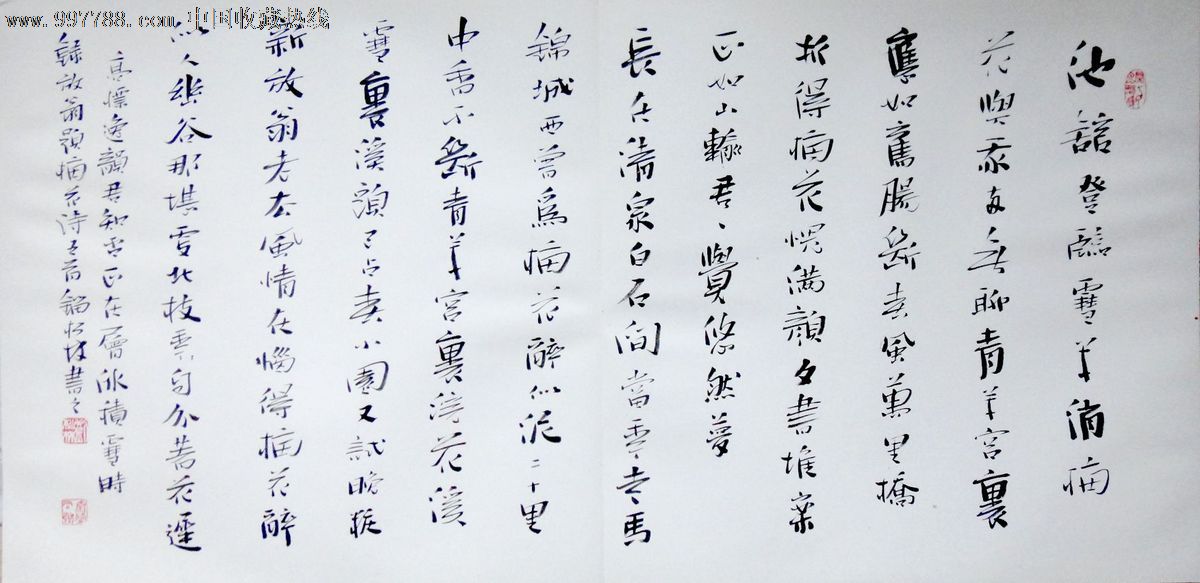 www.997788.com 中国收藏热线
池館登臨雪半消梅
花與我兩無聊青羊宮裏
應如舊腸斷春風萬里橋
折得梅花愧滿顏文書堆案
正如山輸君一覺悠然夢
長在清泉白石間當年走馬
錦城西曾為梅花醉似泥二十里
中香不斷青羊宮裏浣花溪
雪裏溪頭已占春小園又試晚粧
新放翁老去風情在惱得梅花醉
似人幽谷那堪更北枝年年自分著花遲
高標逸韻君知否正在層冰積雪時
錄放翁題梅花詩五首 書之